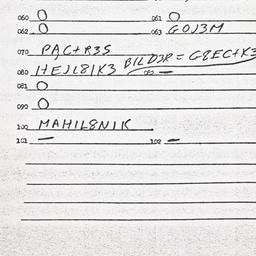 060 O 061 O
062 O 063 GOJ3M
070 PAC+R3S
080 HEJL81K3 BILDJR = G8EC+K3
081 O
090 O
100 MAHIL8NIK
101 — 102 —